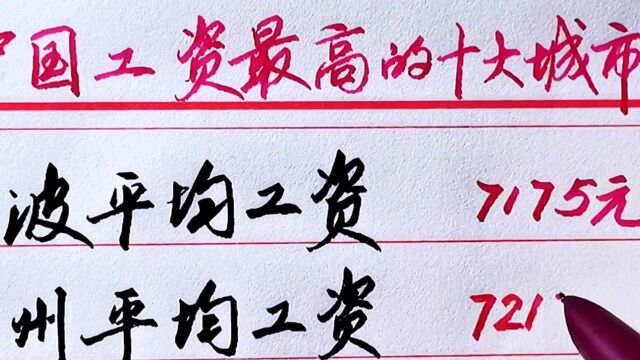 中国工资最高的十大城市
波平均工资 7175元
州平均工资 721